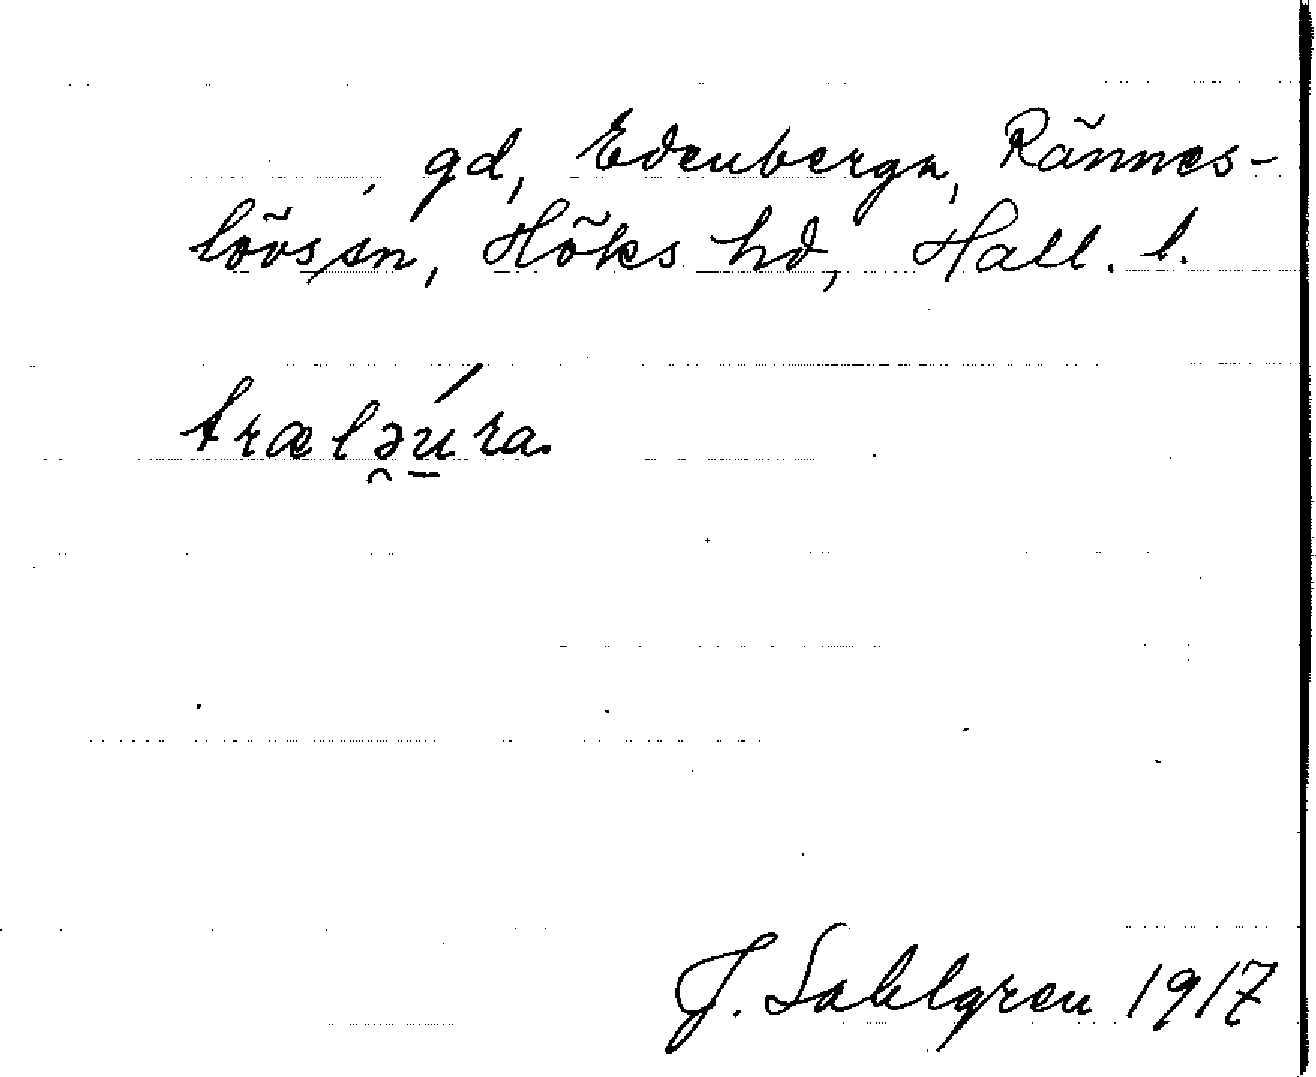 , gd, Edenberga, Rännes-
lövs sn, Höks hd, Hall. l.
træləú̠ra.
J. Sahlgren 1917